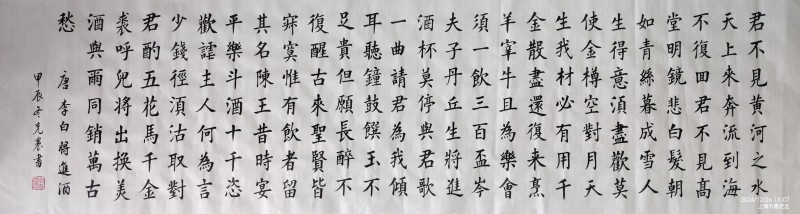 君不見黃河之水
天上來奔流到海
不復回君不見高
堂明鏡悲白髮朝
如青絲暮成雪人
生得意須盡歡莫
使金樽空對月天
生我材必有用千
金散盡還復来烹
羊宰牛且為樂會
須一飲三百盃岑
夫子丹丘生將進
酒杯莫停與君歌
一曲請君為我傾
耳聽鐘鼓饌玉不
足貴但願長醉不
復醒古來聖賢皆
寂寞惟有飲者留
其名陳王昔時宴
平樂斗酒十千恣
歡謔主人何為言
少錢徑須沽取對
君酌五花馬千金
裘呼兒將出換美
酒與爾同銷萬古
愁
唐李白將進酒
甲辰冬書
2024/12/26 13:07